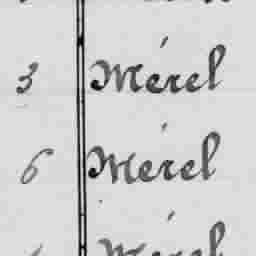 3 Mérel
6 Mérel
Mérel